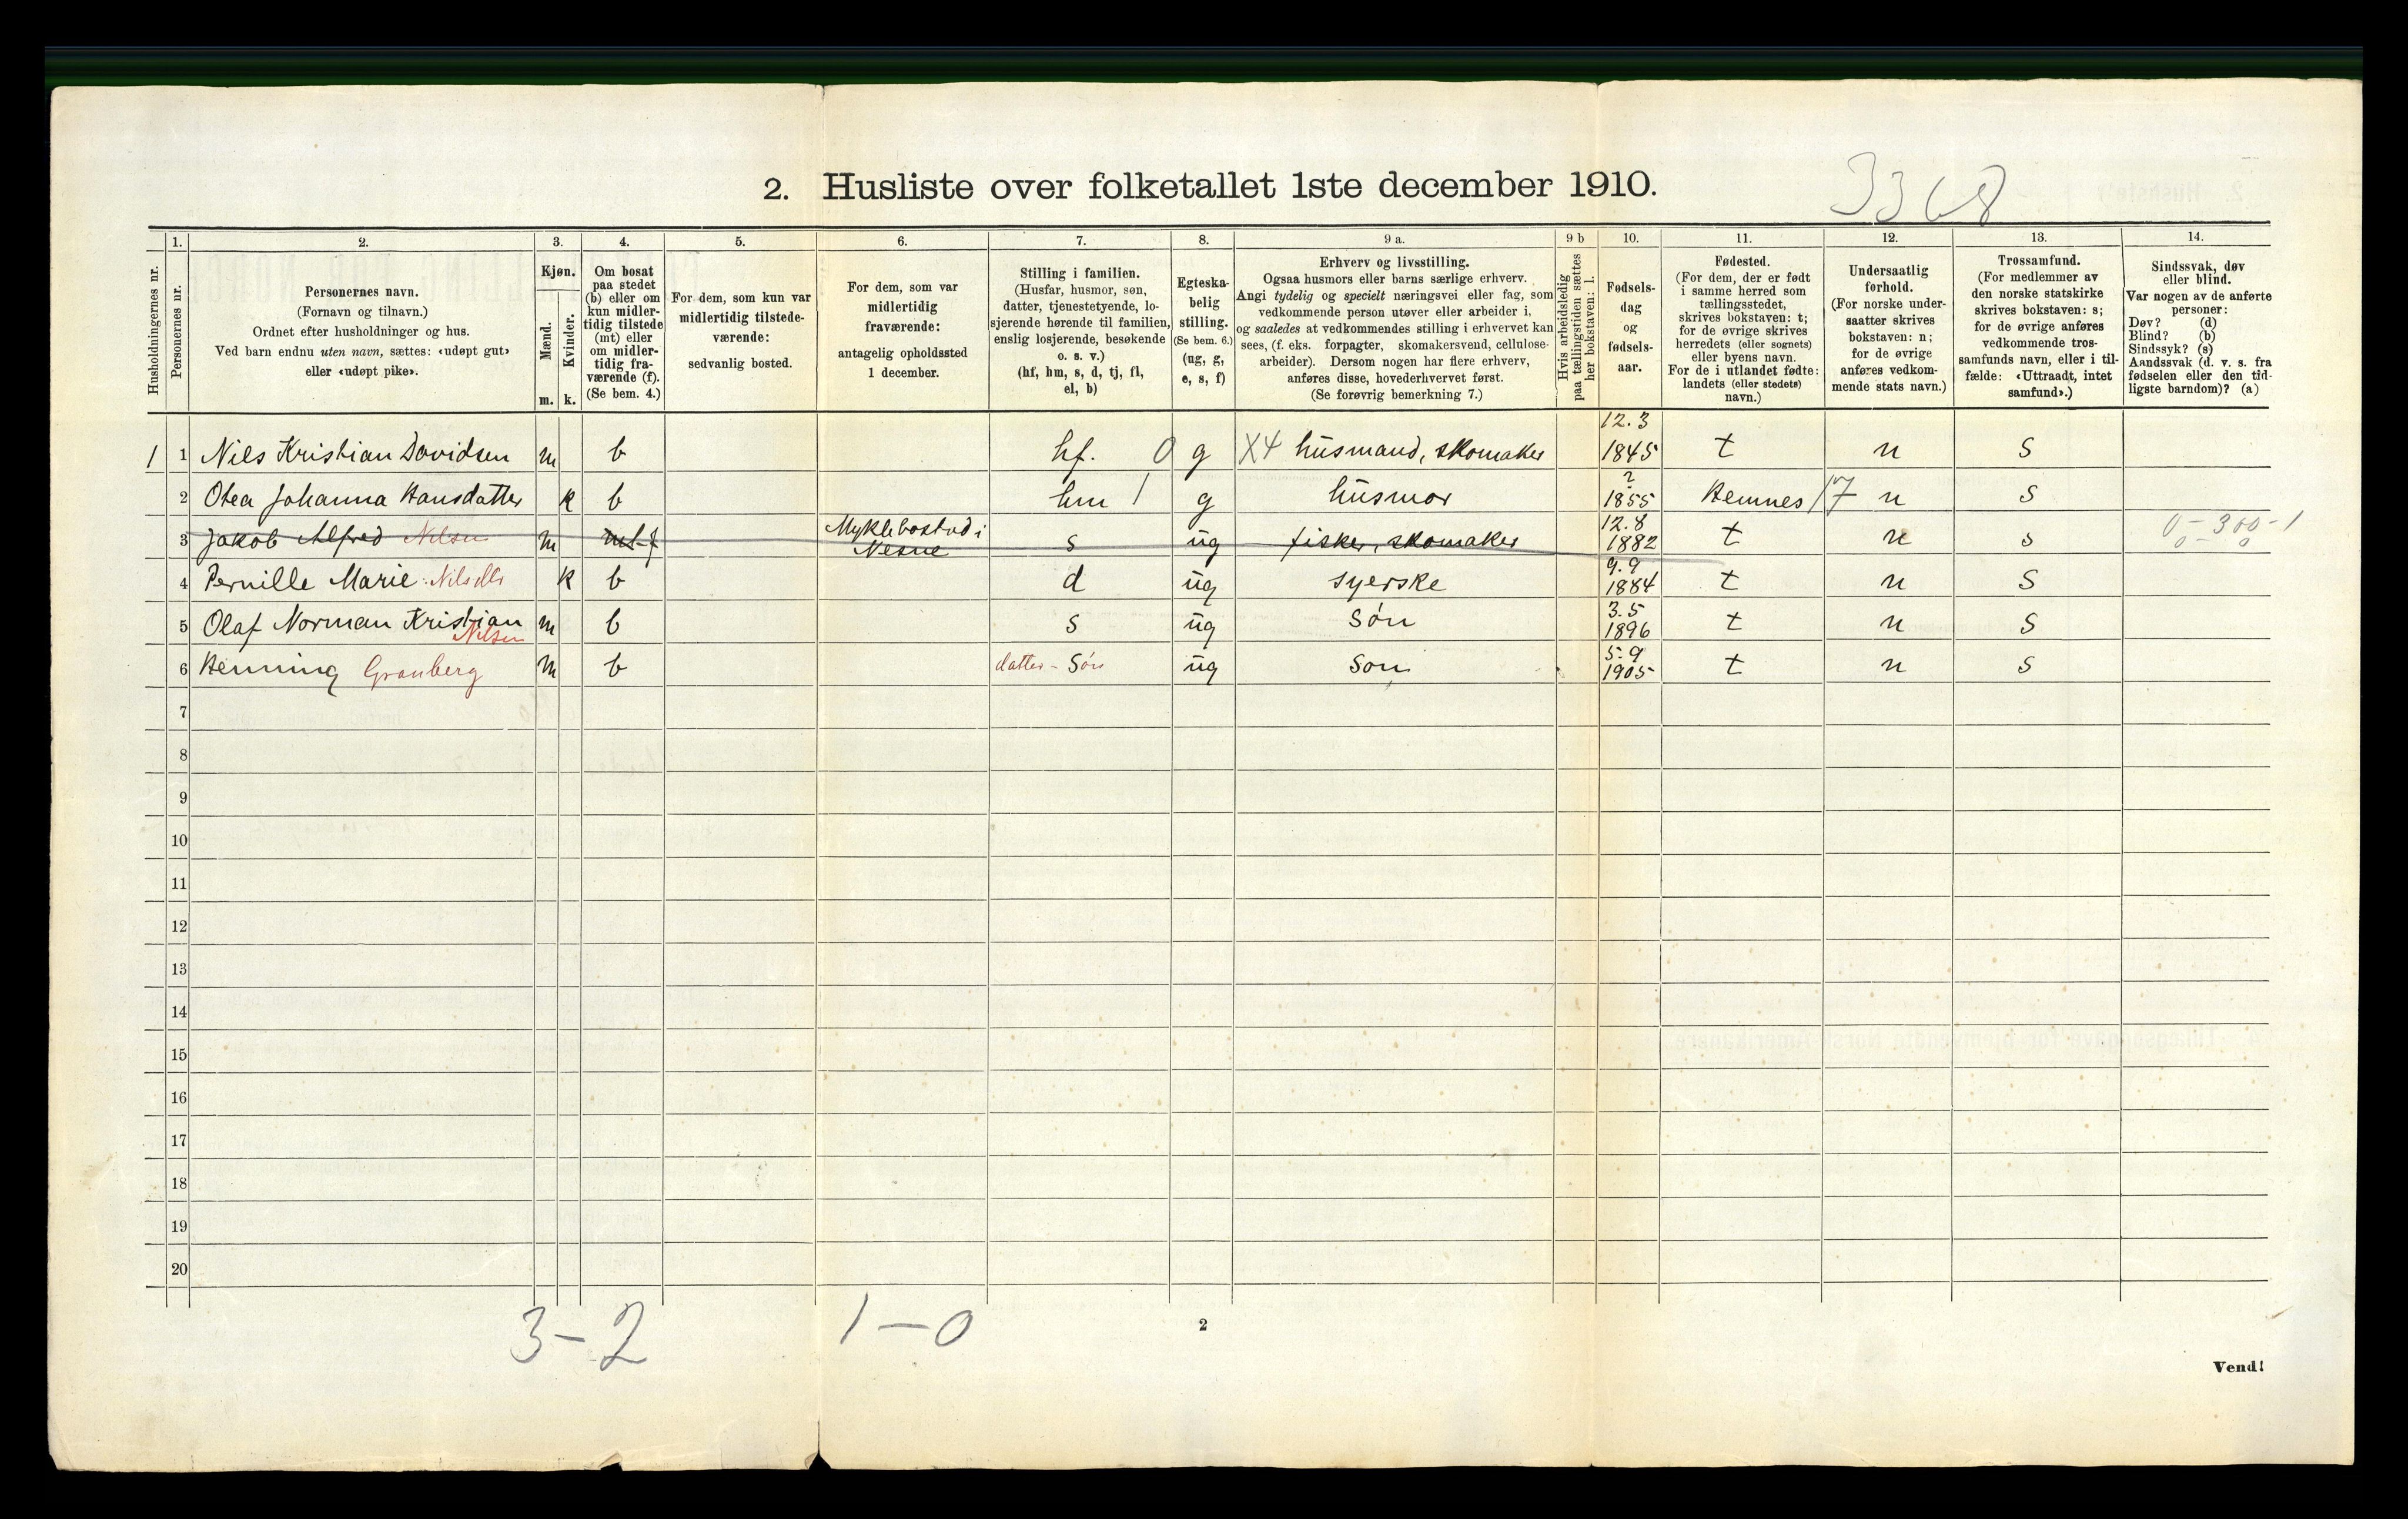 2. Husliste over folketallet 1ste december 1910.
3368
Husholdningernes nr.
1.
Personernes nr.
2.
Personernes navn.
(Fornavn og tilnavn.)
Ordnet efter husholdninger og hus.
Ved barn endnu uten navn, sættes: «udøpt gut»
eller «udøpt pike».
3.
Kjøn.
Mænd.
Kvinder.
m. k.
4.
Om bosat
paa stedet
(b) eller om
kun midler-
tidig tilstede
(mt) eller
om midler-
tidig fra-
værende (f).
(Se bem. 4.)
5.
For dem, som kun var
midlertidig tilstede-
værende:
sedvanlig bosted.
6.
For dem, som var
midlertidig
fraværende:
antagelig opholdssted
1 december.
7.
Stilling i familien.
(Husfar, husmor, søn,
datter, tjenestetyende, lo-
sjerende hørende til familien,
enslig losjerende, besøkende
o. s. v.)
(hf, hm, s, d, tj, fl,
el, b)
8.
Egteska-
belig
stilling.
(Se bem. 6.)
(ug, g,
e, s, f)
9 a.
Erhverv og livsstilling.
Ogsaa husmors eller barns særlige erhverv.
Angi tydelig og specielt næringsvei eller fag, som
vedkommende person utøver eller arbeider i,
og saaledes at vedkommendes stilling i erhvervet kan
sees, (f. eks. forpagter, skomakersvend, cellulose-
arbeider). Dersom nogen har flere erhverv,
anføres disse, hovederhvervet først.
(Se forøvrig bemerkning 7.)
9 b
Hvis arbeidsledig
paa tællingstiden sættes
her bokstaven: l.
10.
Fødsels-
dag
og
fødsels-
aar.
11.
Fødested.
(For dem, der er født
i samme herred som
tællingsstedet,
skrives bokstaven: t;
for de øvrige skrives
herredets (eller sognets)
eller byens navn.
For de i utlandet fødte:
landets (eller stedets)
navn.)
12.
Undersaatlig
forhold.
(For norske under-
saatter skrives
bokstaven: n;
for de øvrige
anføres vedkom-
mende stats navn.)
13.
Trossamfund.
(For medlemmer av
den norske statskirke
skrives bokstaven: s;
for de øvrige anføres
vedkommende tros-
samfunds navn, eller i til-
fælde: «Uttraadt, intet
samfund».)
14.
Sindssvak, døv
eller blind.
Var nogen av de anførte
personer:
Døv? (d)
Blind? (b)
Sindssyk? (s)
Aandssvak (d. v. s. fra
fødselen eller den tid-
ligste barndom)? (a)
1 1 Nils Kristian Davidsen m b hf. 0 g X4 husmand, skomaker 12.3 1845 t n s
2 Otea Johanna Hansdatter k b hm 1 g husmor ? 1855 Hemnes 17 n s
3 Jakob Alfred Nilsen m mt f Myklebostad i Nesne s ug fisker, skomaker 12.8 1882 t n s 0-300-1
0-0
4 Pernille Marie Nilsdtr k b d ug syerske 9.9 1884 t n s
5 Olaf Norman Kristian Nilsen m b s ug Søn 3.5 1896 t n s
6 Henning Granberg m b datter-Søn ug Søn 5.9 1905 t n s
7
8
9
10
11
12
13
14
15
16
17
18
19
20
3-2 1-0
2
Vend!